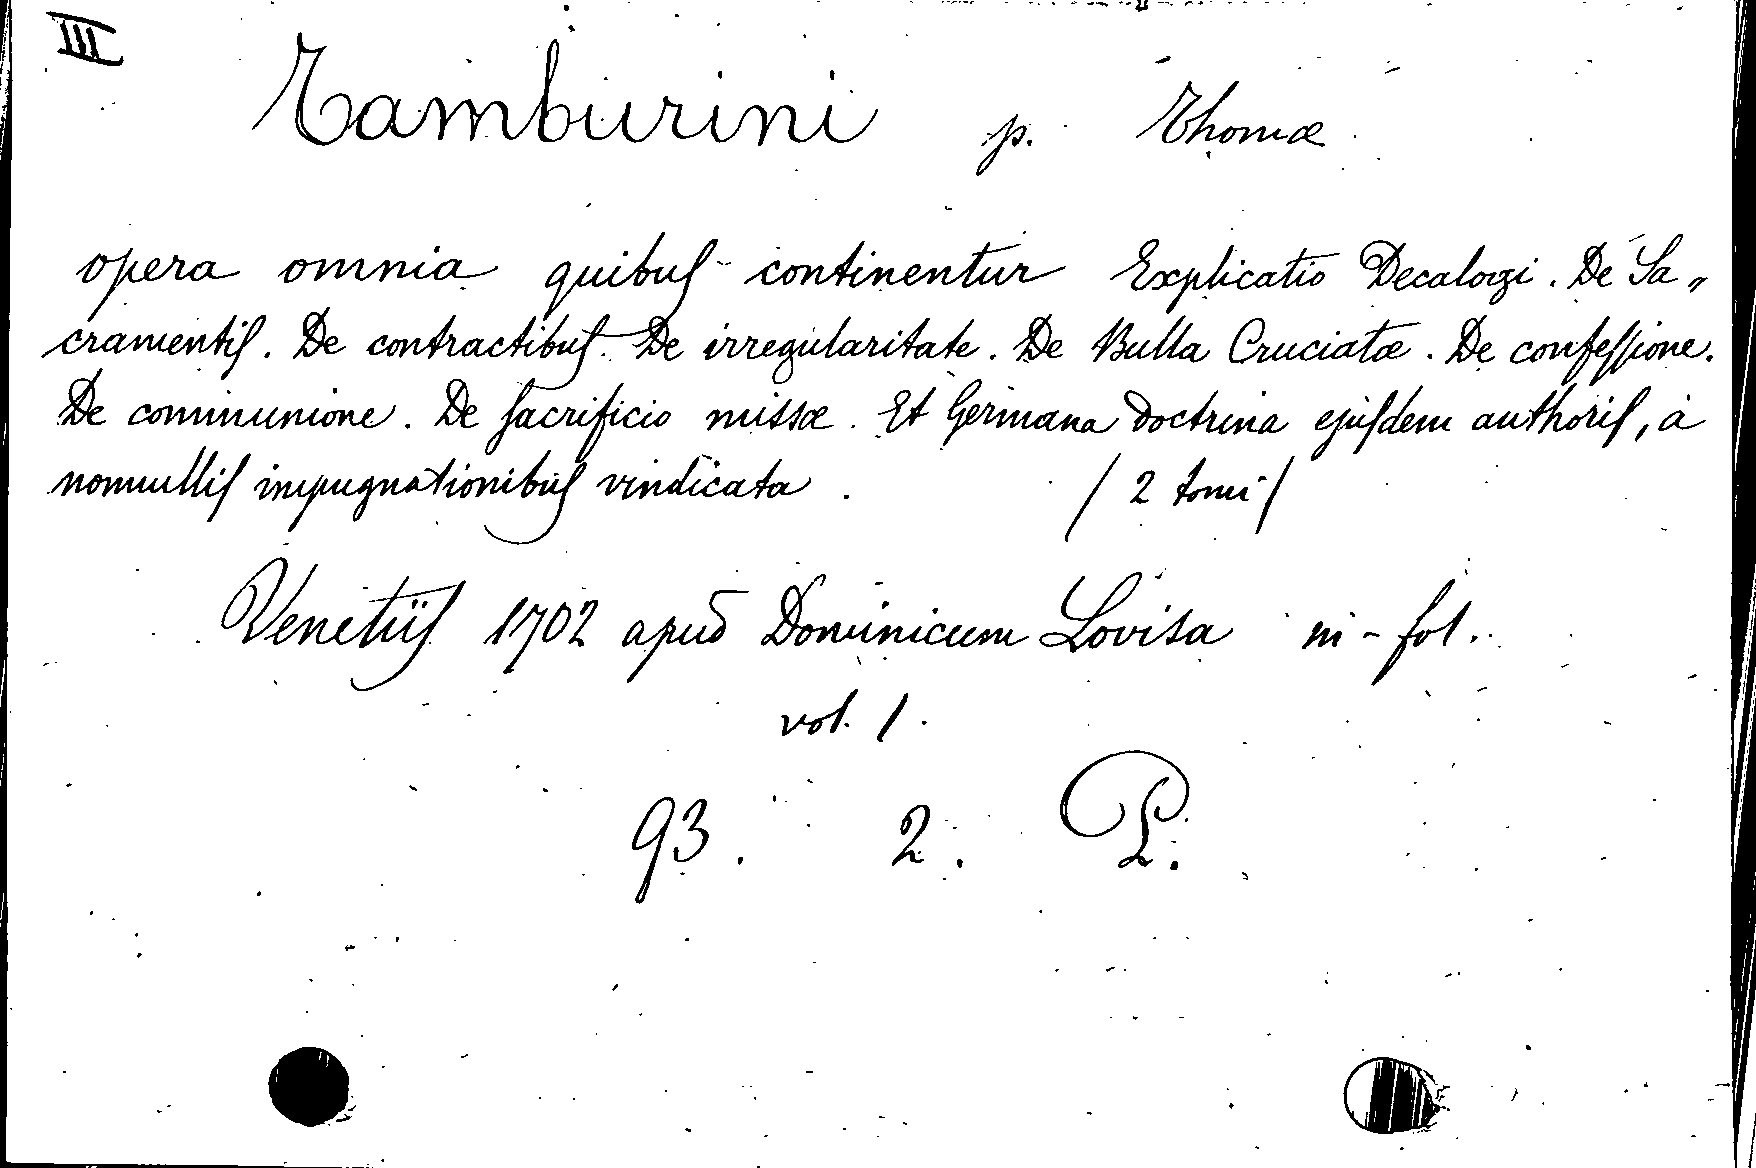 III
Tamburini p. Thomæ
opera omnia quibus continentur Explicatio Decalogi. De Sa„
cramentis. De contractibus. De irregularitate. De Bulla Cruciatæ. De confessione.
De communione. De sacrificio missæ. Et Germana doctrina ejusdem authoris, à
nonnullis impugnationibus vindicata. / 2 tomi /
Venetiis 1702 apud Dominicum Lovisa in-fol.
vol. 1.
93. 2. P.